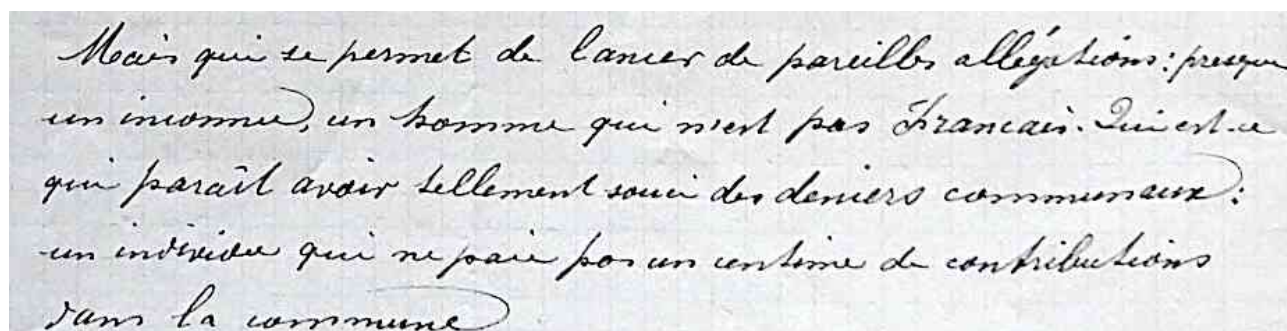 Mais qui se permet de lancer de pareilles allégations: presque
un inconnu, un homme qui n'est pas Francais. Qui est-ce
qui paraît avoir tellement souci des deniers communaux:
un individu qui ne paie pas un centime de contributions
dans la commune